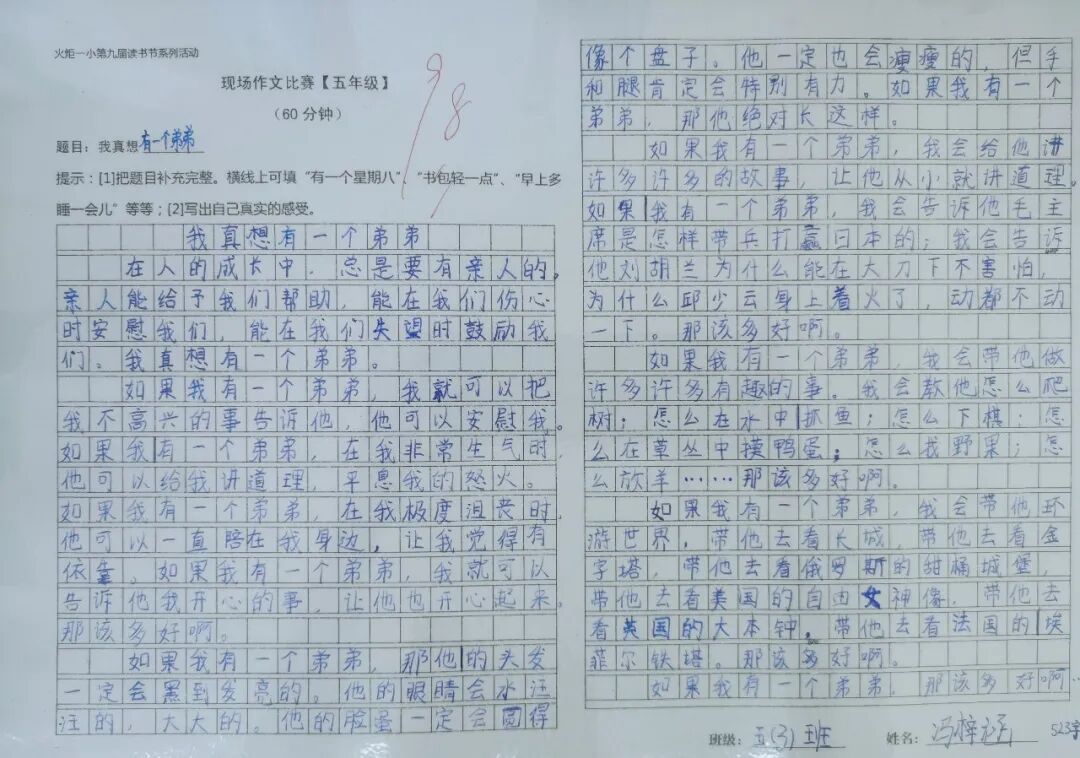 火炬一小第九届读书节系列活动
现场作文比赛【五年级】
（60 分钟）
98
题目：我真想有一个弟弟
提示：[1]把题目补充完整。横线上可填“有一个星期八”、“书包轻一点”、“早上多
睡一会儿”等等；[2]写出自己真实的感受。
我真想有一个弟弟
在人的成长中，总是要有亲人的。
亲人能给予我们帮助，能在我们伤心
时安慰我们，能在我们失望时鼓励我
们。我真想有一个弟弟。
如果我有一个弟弟，我就可以把
我不高兴的事告诉他，他可以安慰我。
如果我有一个弟弟，在我非常生气时，
他可以给我讲道理，平息我的怒火。
如果我有一个弟弟，在我极度沮丧时，
他可以一直陪在我身边，让我觉得有
依靠。如果我有一个弟弟，我就可以
告诉他我开心的事，让他也开心起来。
那该多好啊。
如果我有一个弟弟，那他的头发
一定会黑到发亮的。他的眼睛会水汪
汪的，大大的。他的脸蛋一定会圆得
像个盘子。他一定也会瘦瘦的，但手
和腿肯定会特别有力。如果我有一个
弟弟，那他绝对长这样。
如果我有一个弟弟，我会给他讲
许多许多的故事，让他从小就讲道理。
如果我有一个弟弟，我会告诉他毛主
席是怎样带兵打赢日本的；我会告诉
他刘胡兰为什么能在大刀下不害怕，
为什么邱少云身上着火了，动都不动
一下。那该多好啊。
如果我有一个弟弟，我会带他做
许多许多有趣的事。我会教他怎么爬
树；怎么在水中抓鱼；怎么下棋；怎
么在草丛中摸鸭蛋；怎么找野果；怎
么放羊……那该多好啊。
如果我有一个弟弟，我会带他环
游世界，带他去看长城，带他去看金
字塔，带他去看俄罗斯的甜桶城堡，
带他去看美国的自由女神像，带他去
看英国的大本钟，带他去看法国的埃
菲尔铁塔。那该多好啊。
如果我有一个弟弟，那该多好啊…
班级：五（3）班 姓名：冯梓 523字